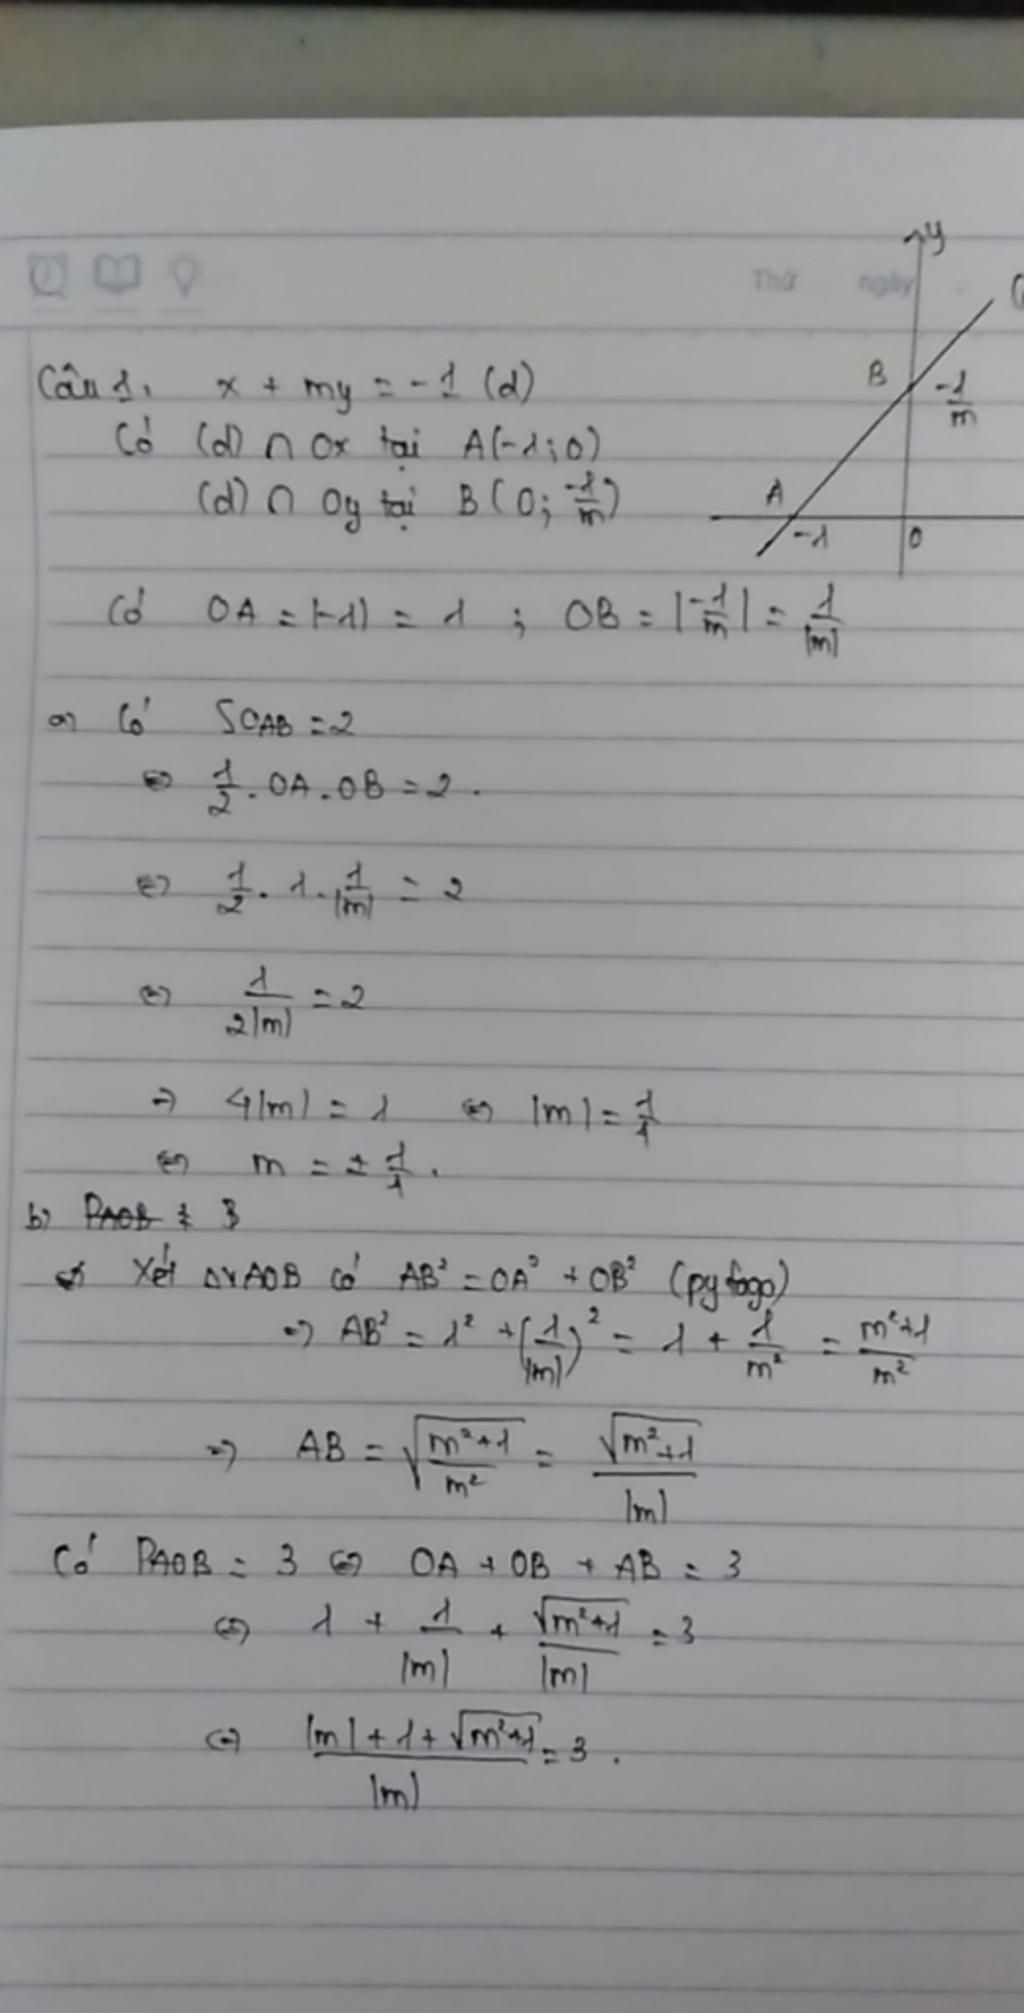 Thứ ngày
y
B
-1/m
A
-1
0
Câu 1. x + my = -1 (d)
Có (d) ∩ Ox tại A(-1; 0)
(d) ∩ Oy tại B(0; -1/m)
Có OA = |-1| = 1 ; OB = |-1/m| = 1/|m|
a) Có SOAB = 2
⇔ 1/2 . OA . OB = 2 .
⇔ 1/2 . 1 . 1/|m| = 2
⇔ 1/(2|m|) = 2
⇒ 4|m| = 1 ⇔ |m| = 1/4
⇔ m = ± 1/4 .
b) PAOB = 3
Xét ΔvAOB có AB² = OA² + OB² (pytago)
⇒ AB² = 1² + (1/|m|)² = 1 + 1/m² = (m²+1)/m²
⇒ AB = √((m²+1)/m²) = √(m²+1)/|m|
Có PAOB = 3 ⇔ OA + OB + AB = 3
⇔ 1 + 1/|m| + √(m²+1)/|m| = 3
⇔ (|m| + 1 + √(m²+1))/|m| = 3 .